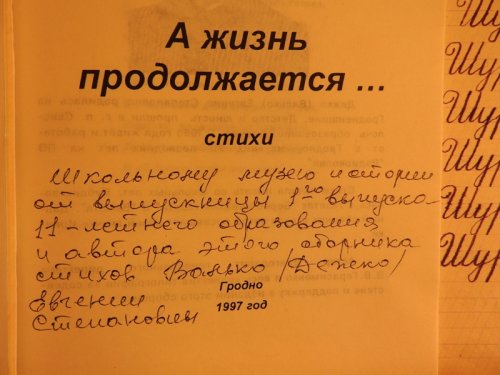 А жизнь
продолжается ...
стихи
Школьному музею истории
от выпускницы 1го выпуска
11-летнего образования
и автора этого сборника
стихов Валько (Дажко)
Евгении
Степановны
Гродно
1997 год
Шур
Шур
Шур
Шур
Шур
Шур